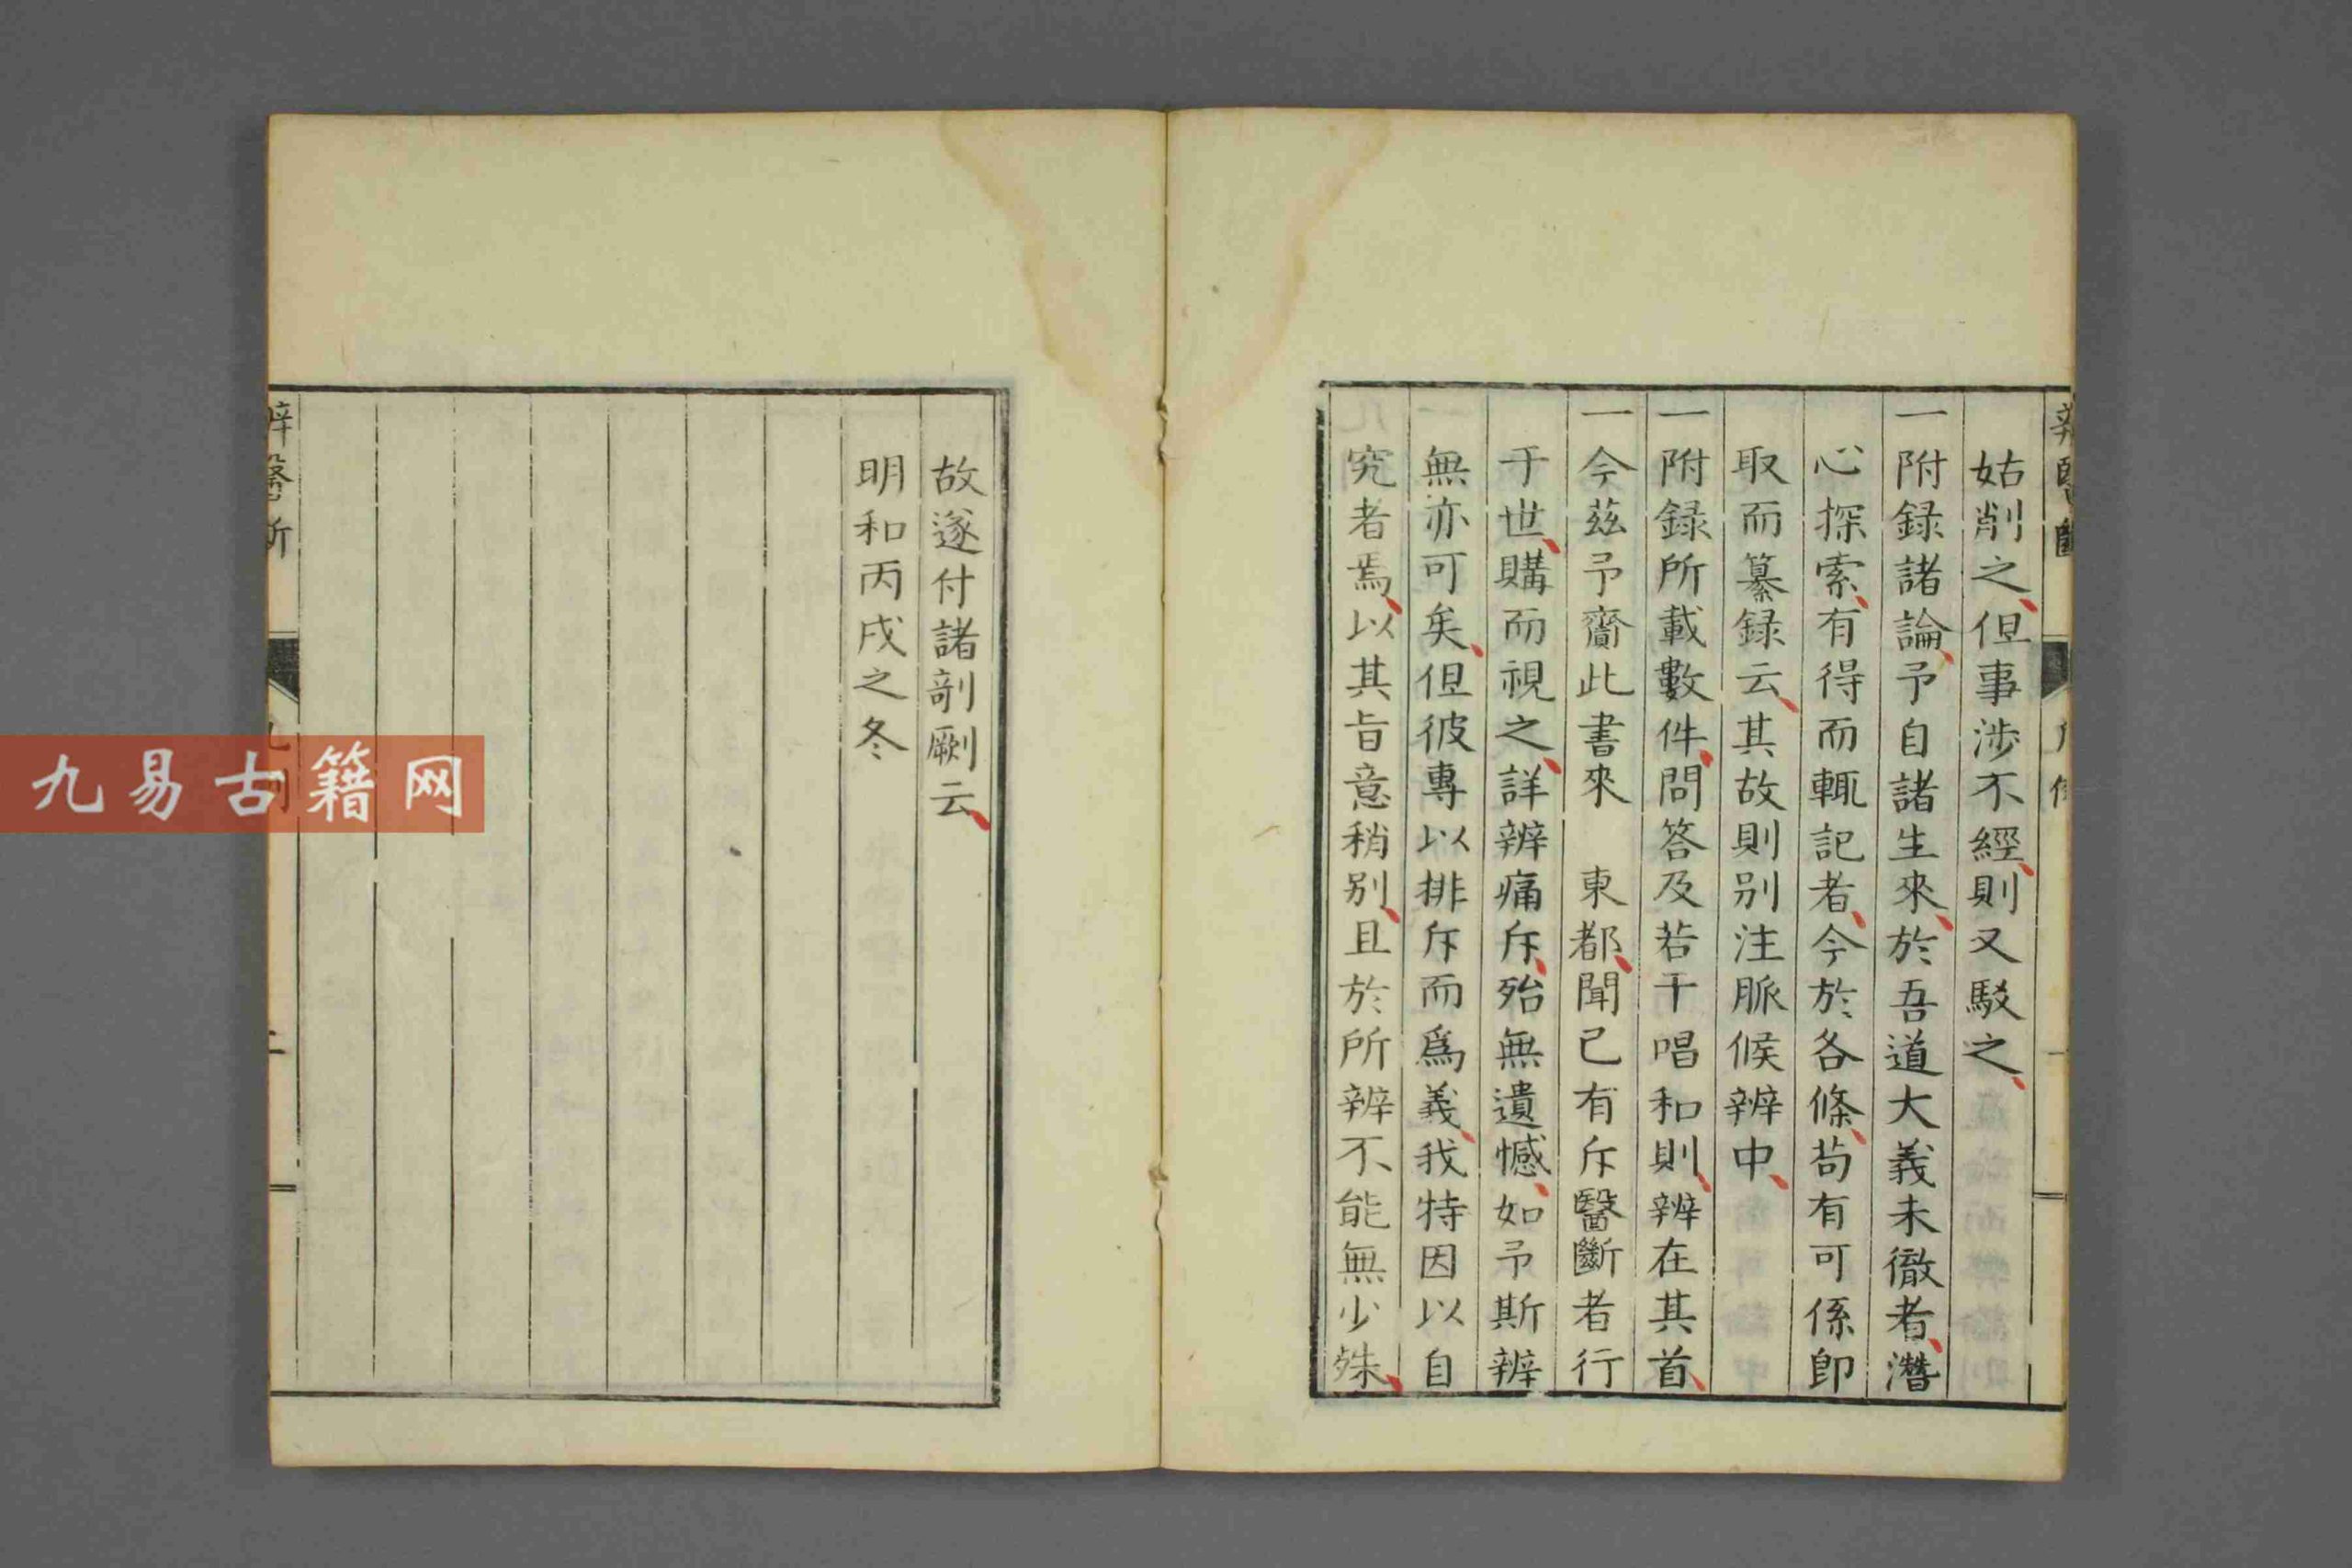 姑削之但事涉不經則又駁之
一附録諸論予自諸生來於吾道大義未徹者潛
心探索有得而輒記者今於各條苟有可係即
取而纂録云其故則别注脈候辨中
一附録所載數件問答及若干唱和則辨在其首
一今茲予齎此書來　東都聞已有斥醫斷者行
于世購而視之詳辨痛斥殆無遺憾如予斯辨
無亦可矣但彼專以排斥而爲義我特因以自
究者焉以其旨意稍别且於所辨不能無少殊
故遂付諸剞劂云
明和丙戌之冬
九易古籍网